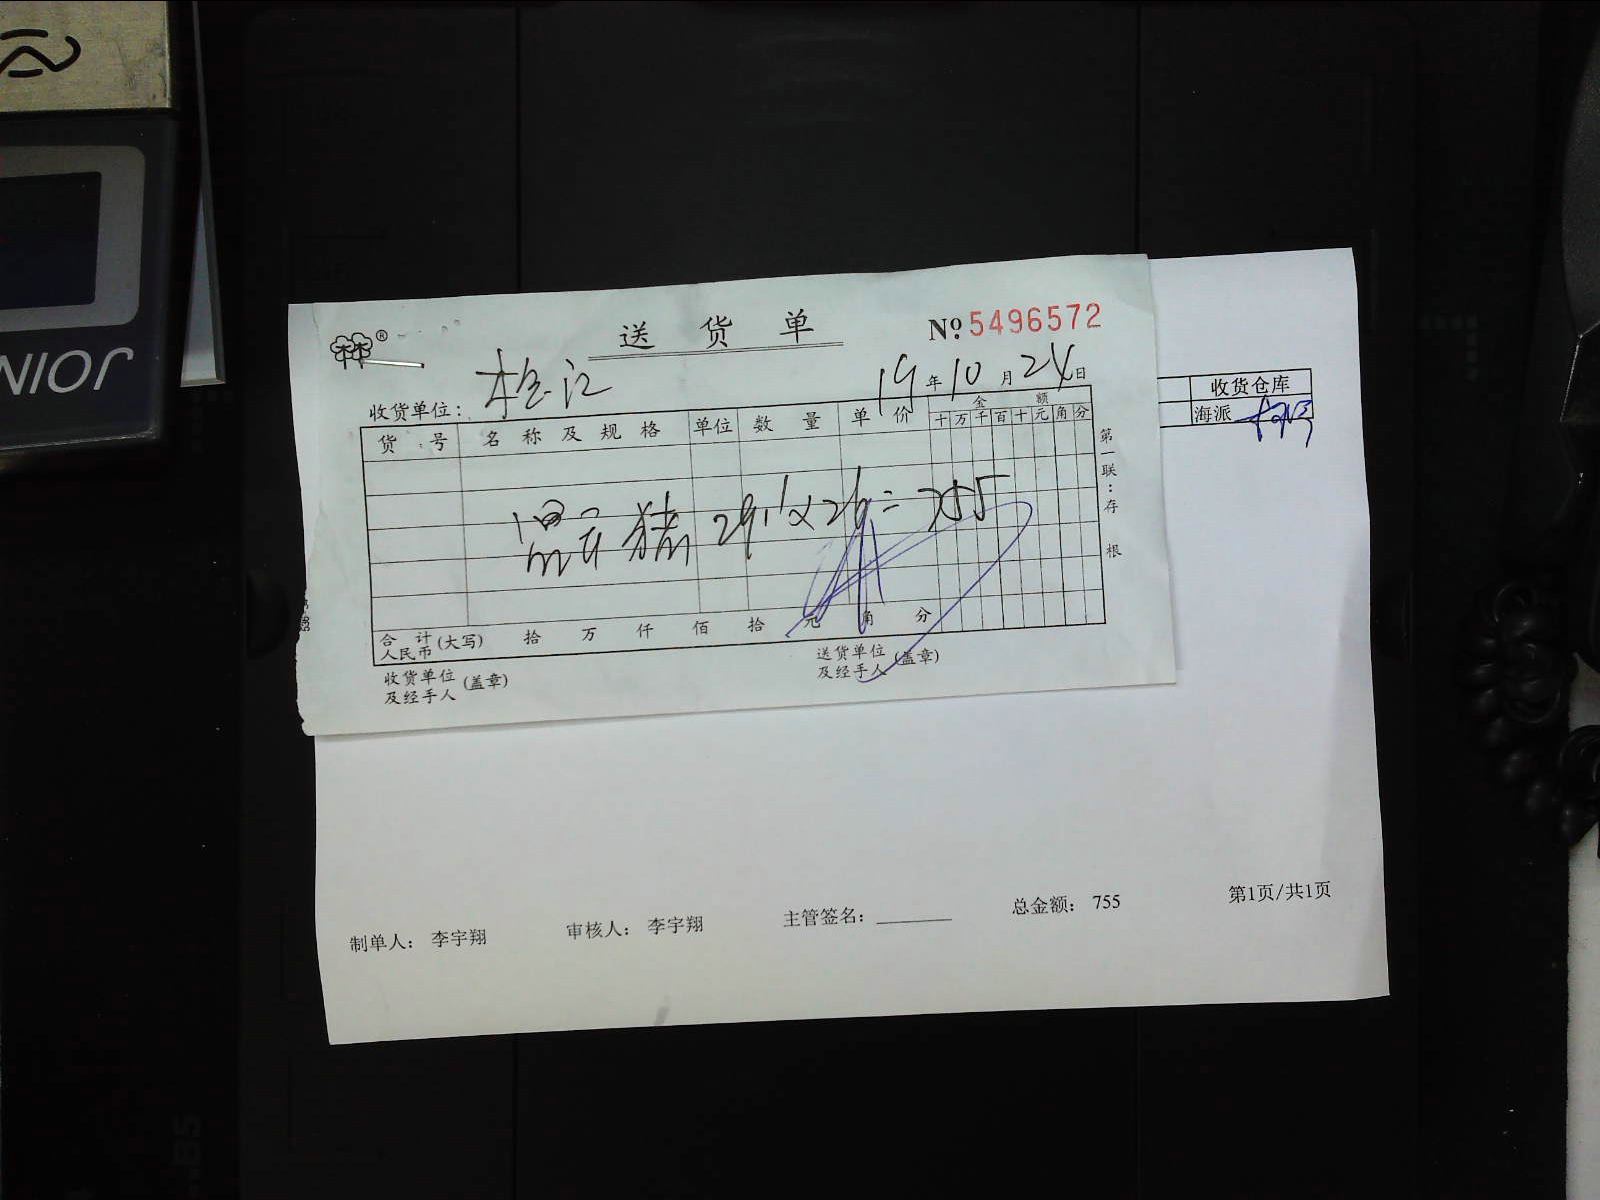 送 货 单
№ 5496572
19年10月24日
收货单位：松江
货 号 名 称 及 规 格 单位 数 量 单 价 金 额
十 万 千 百 十 元 角 分
猪 29.1×26=755
合 计 人民币 (大写) 拾 万 仟 佰 拾 元 角 分
收货单位及经手人 (盖章)
送货单位及经手人 (盖章)
第一联：存根
收货仓库
海派
制单人： 李宇翔 审核人： 李宇翔 主管签名： 总金额： 755 第1页/共1页
NIOR